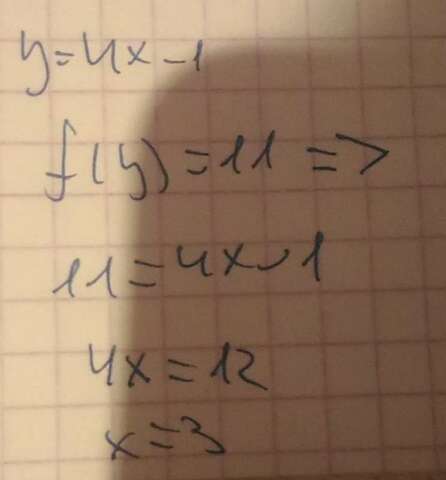 y=4x-1
f(y)=11=>
11=4x-1
4x=12
x=3